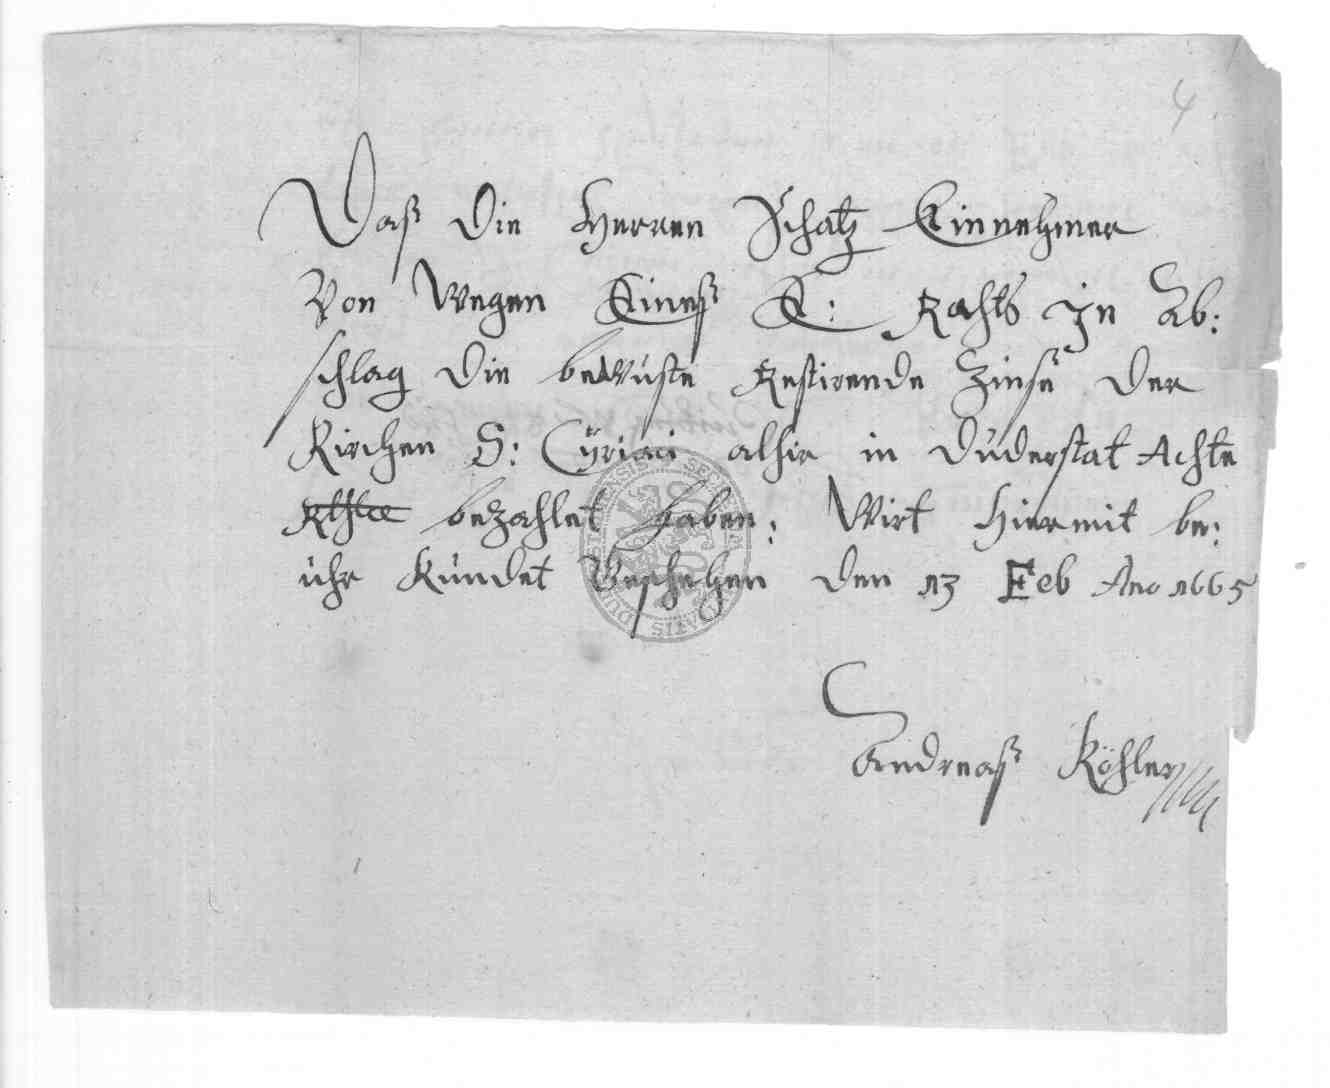 4
Daß die Herren Schatz Einnehmer
Von Wegen Eineß E: Rahts in Ab:
schlag die bewuste Restirende Zinse der
Kirchen S: Cÿriaci alhir in Duderstat Achte
Rthlr bezahlet haben: Wirt Hiermit be:
uhr Kundet Geschehen den 13 Feb Ano 1665
Andreaß Köhler